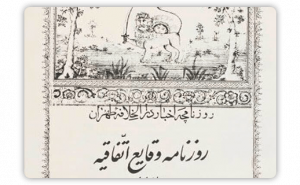 روزنامچه اخبار دار الخلافه طهران
روزنامه وقایع اتّفاقیه